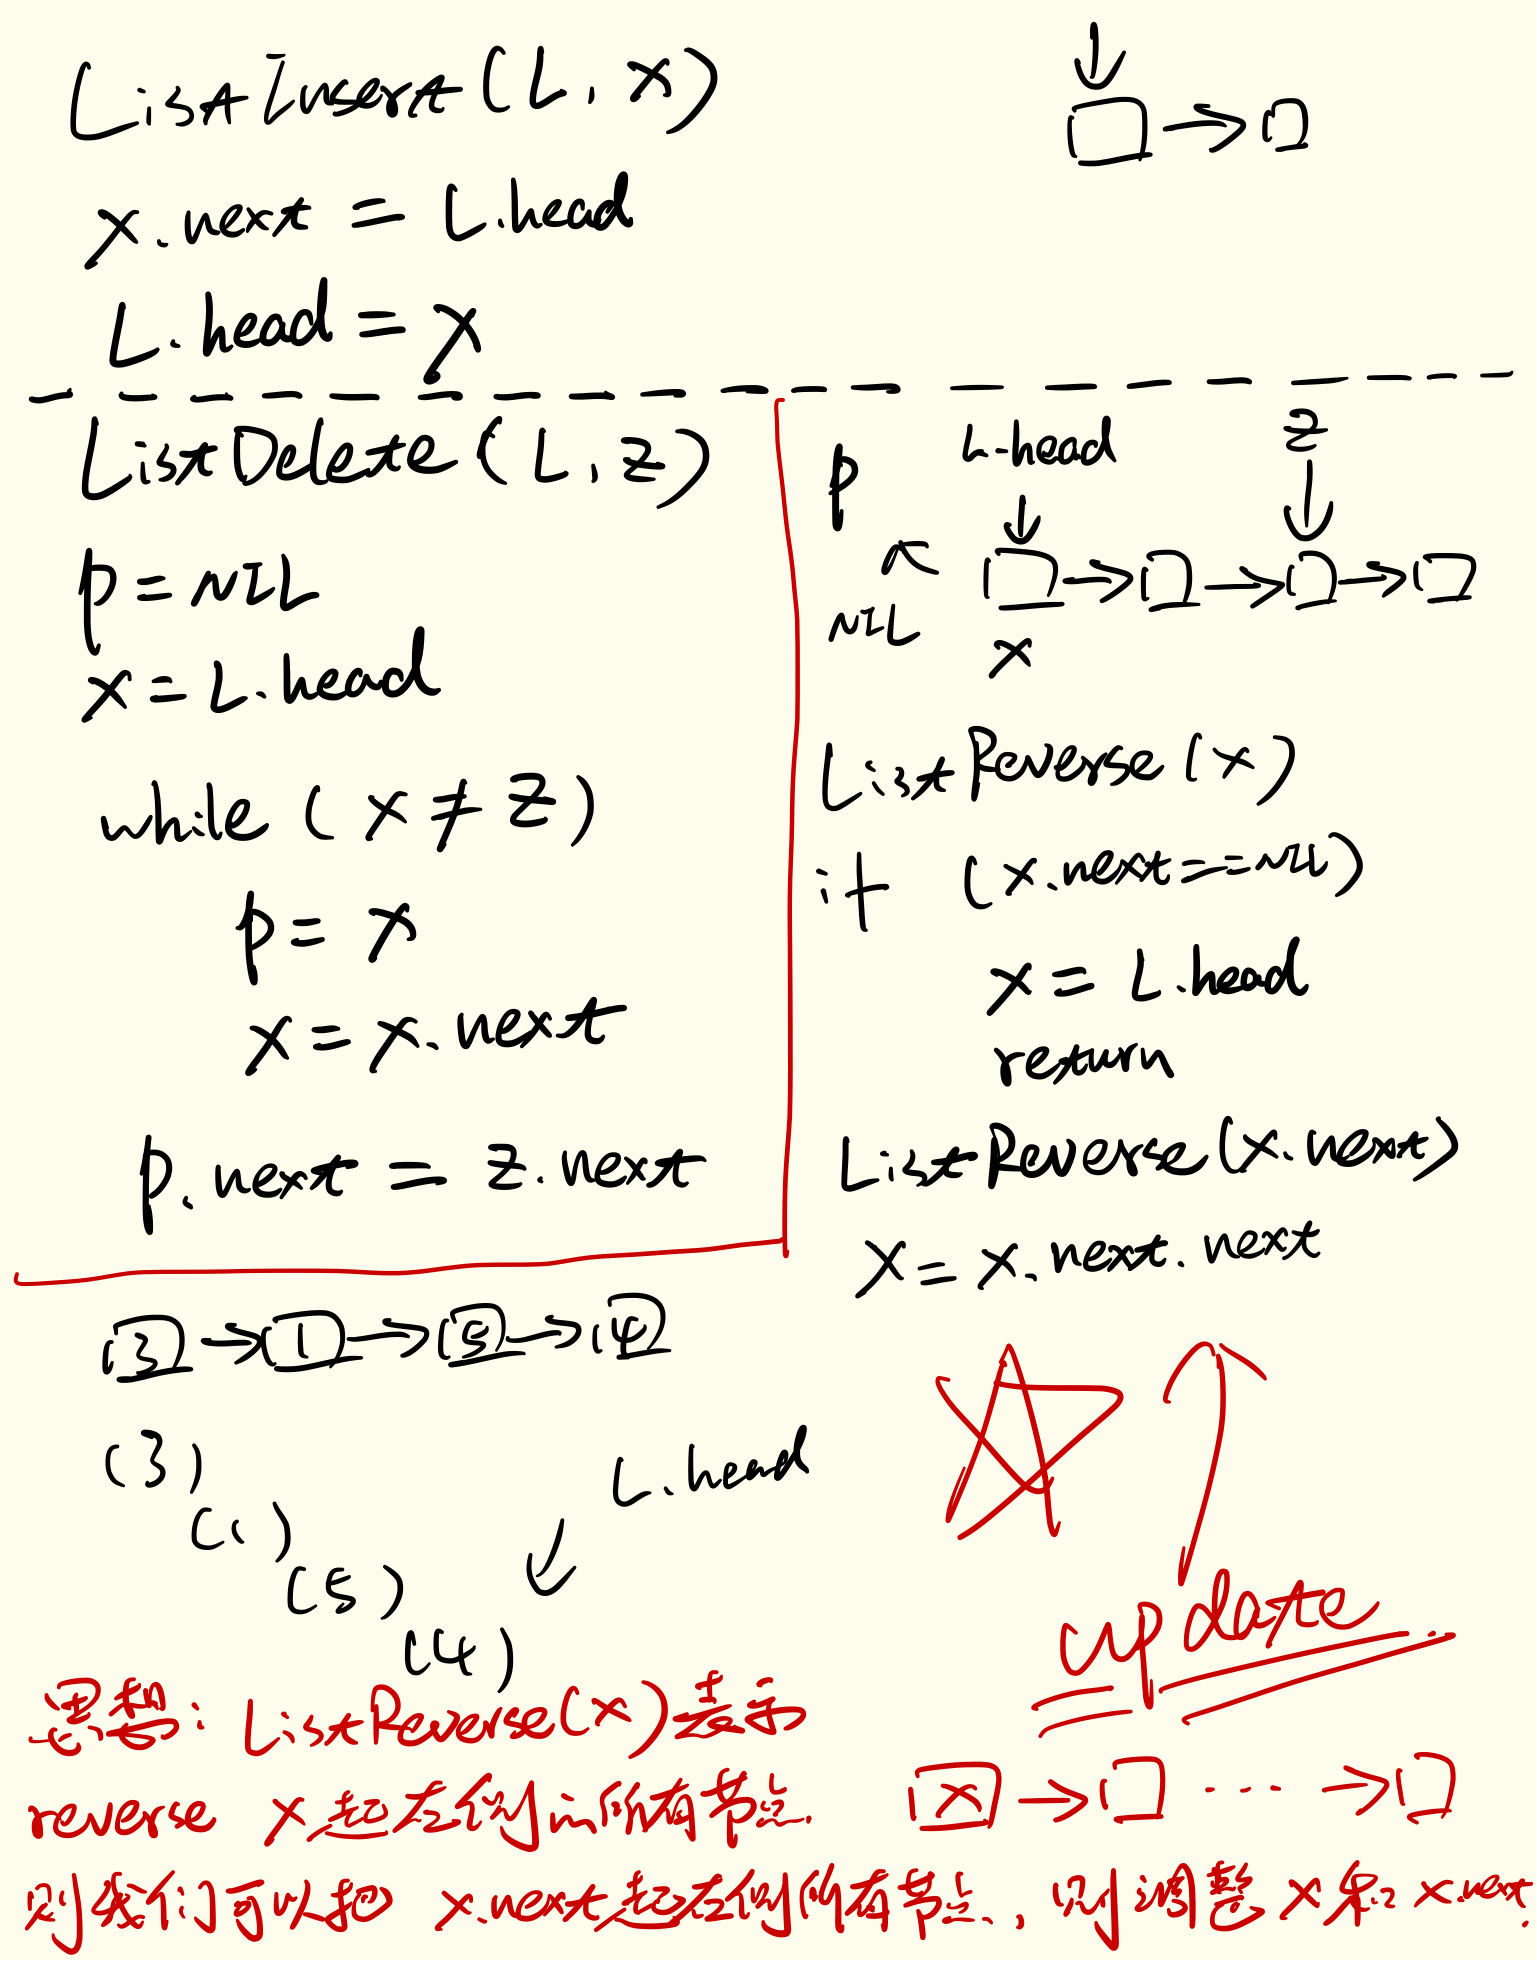 ListInsert(L, x)
x.next = L.head
L.head = x
ListDelete(L, z)
p = NIL
x = L.head
while (x ≠ z)
p = x
x = x.next
p.next = z.next
p
L.head
z
NIL
x
ListReverse(x)
if (x.next == NIL)
x = L.head
return
ListReverse(x.next)
x = x.next.next
3 1 5 4
(3)
(1)
(5)
(4)
L.head
update
思想: ListReverse(x)表示
reverse x起右侧的所有节点.
x
则我们可以把 x.next起右侧所有节点, 则调整x和x.next.